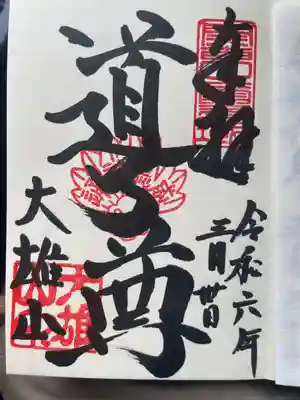 奉拝
令和六年
三月廿日
道了尊
大雄山